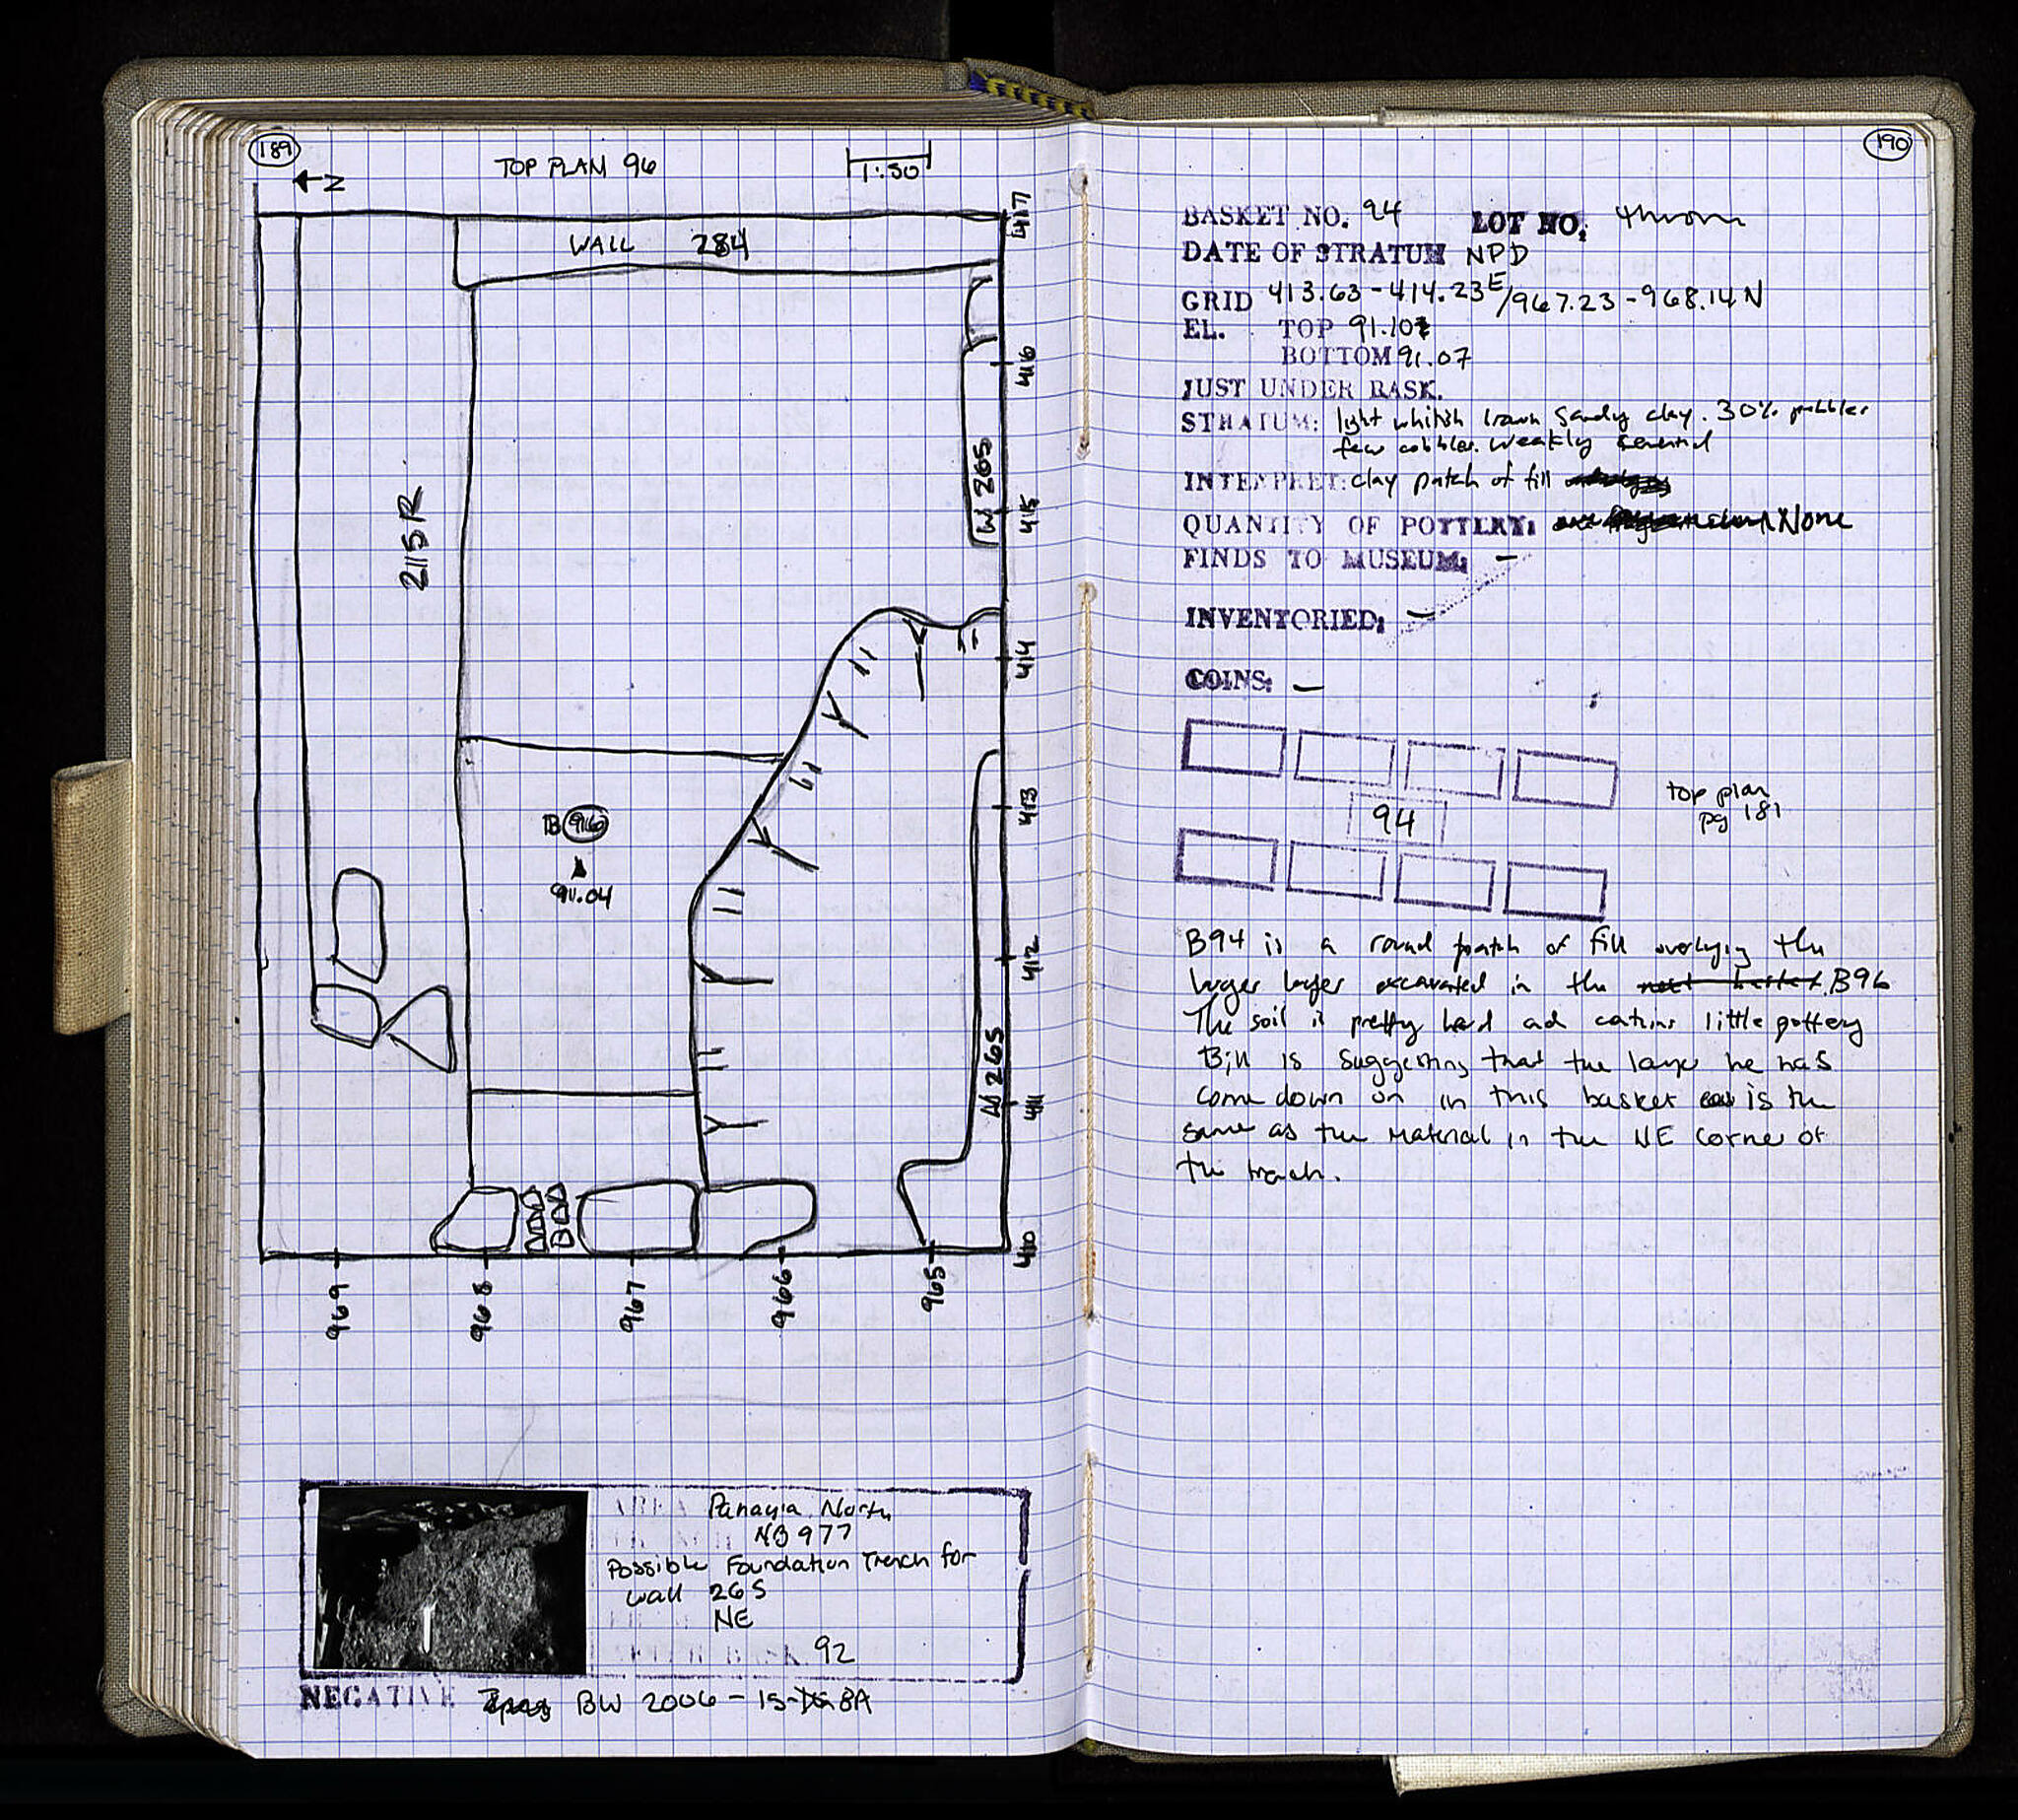 189
←N
TOP PLAN 96
1:50
WALL 284
2115R
W 265
W 265
B 96
91.04
417
416
415
414
413
412
411
410
969
968
967
966
965
AREA Panayia North
NB 977
Possible Foundation Trench for
wall 265
NE
AFTER BASK. 92
NEGATIVE BW 2006-15- 8A
190
BASKET NO. 94 LOT NO. thrown
DATE OF STRATUM NPD
GRID 413.63-414.23E/967.23-968.14N
EL. TOP 91.10
BOTTOM 91.07
JUST UNDER BASK.
STRATUM: light whitish brown sandy clay. 30% pebbles
few cobbles. weakly
INTERPRET: clay patch of fill
QUANTITY OF POTTERY: None
FINDS TO MUSEUM: -
INVENTORIED: -
COINS: -
94
top plan
pg 181
B94 is a round patch of fill overlying the
larger layer excavated in the next basket B96
The soil is pretty hard and contains little pottery
Bill is suggesting that the layer he has
come down on in this basket is the
same as the material in the NE corner of
the trench.